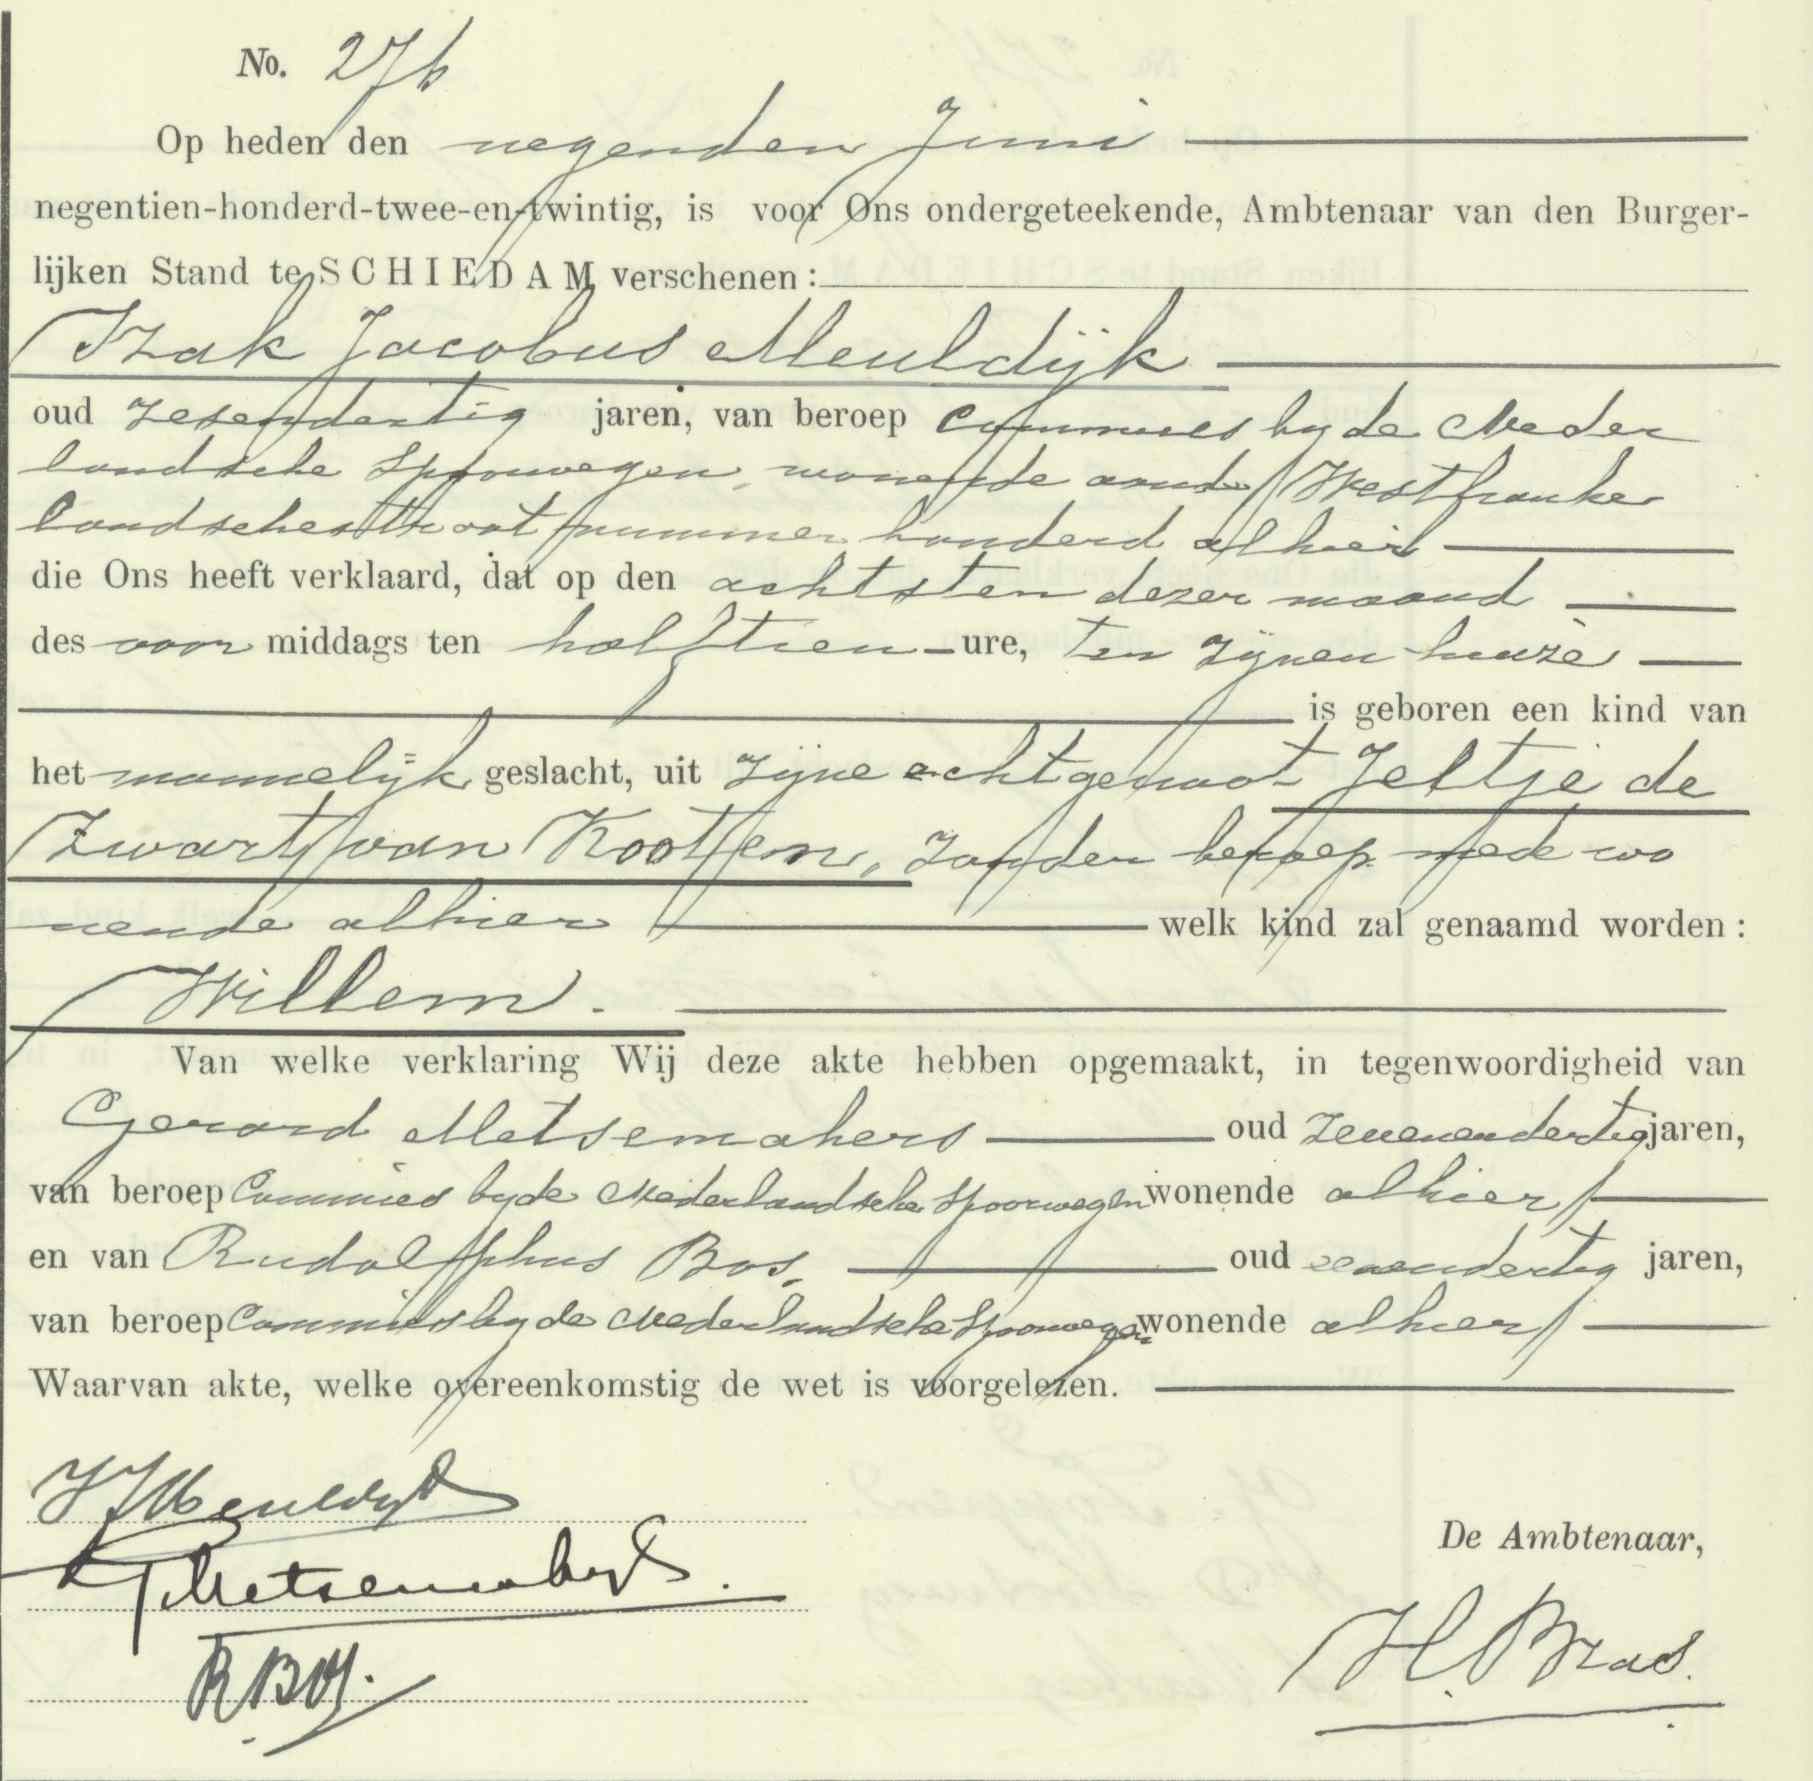 No. 276
Op heden den negenden Juni
negentien-honderd-twee-en-twintig, is voor Ons ondergeteekende, Ambtenaar van den Burger-
lijken Stand te SCHIEDAM verschenen:
Izak Jacobus Meuldijk
oud zesendertig jaren, van beroep commies by de Neder
landsche Spoorwegen, wonende aan de Westfranke
landschestraat nummer honderd alhier
die Ons heeft verklaard, dat op den achtsten dezer maand
des voor middags ten half tien ure, ten zijnen huize
is geboren een kind van
het mannelijk geslacht, uit zijne echtgenoot Jeltje de
Zwart van Kooten, zonder beroep mede wo
nende alhier welk kind zal genaamd worden:
Willem.
Van welke verklaring Wij deze akte hebben opgemaakt, in tegenwoordigheid van
Gerard Metsemakers oud zevenendertig jaren,
van beroep Commies by de Nederlandsche Spoorwegen wonende alhier
en van Rudolphus Bos, oud eenendertig jaren,
van beroep Commies by de Nederlandsche Spoorwegen wonende alhier
Waarvan akte, welke overeenkomstig de wet is voorgelezen.
IJMeuldijk
G Metsemakers.
De Ambtenaar,
R. Bos.
H. Bras.